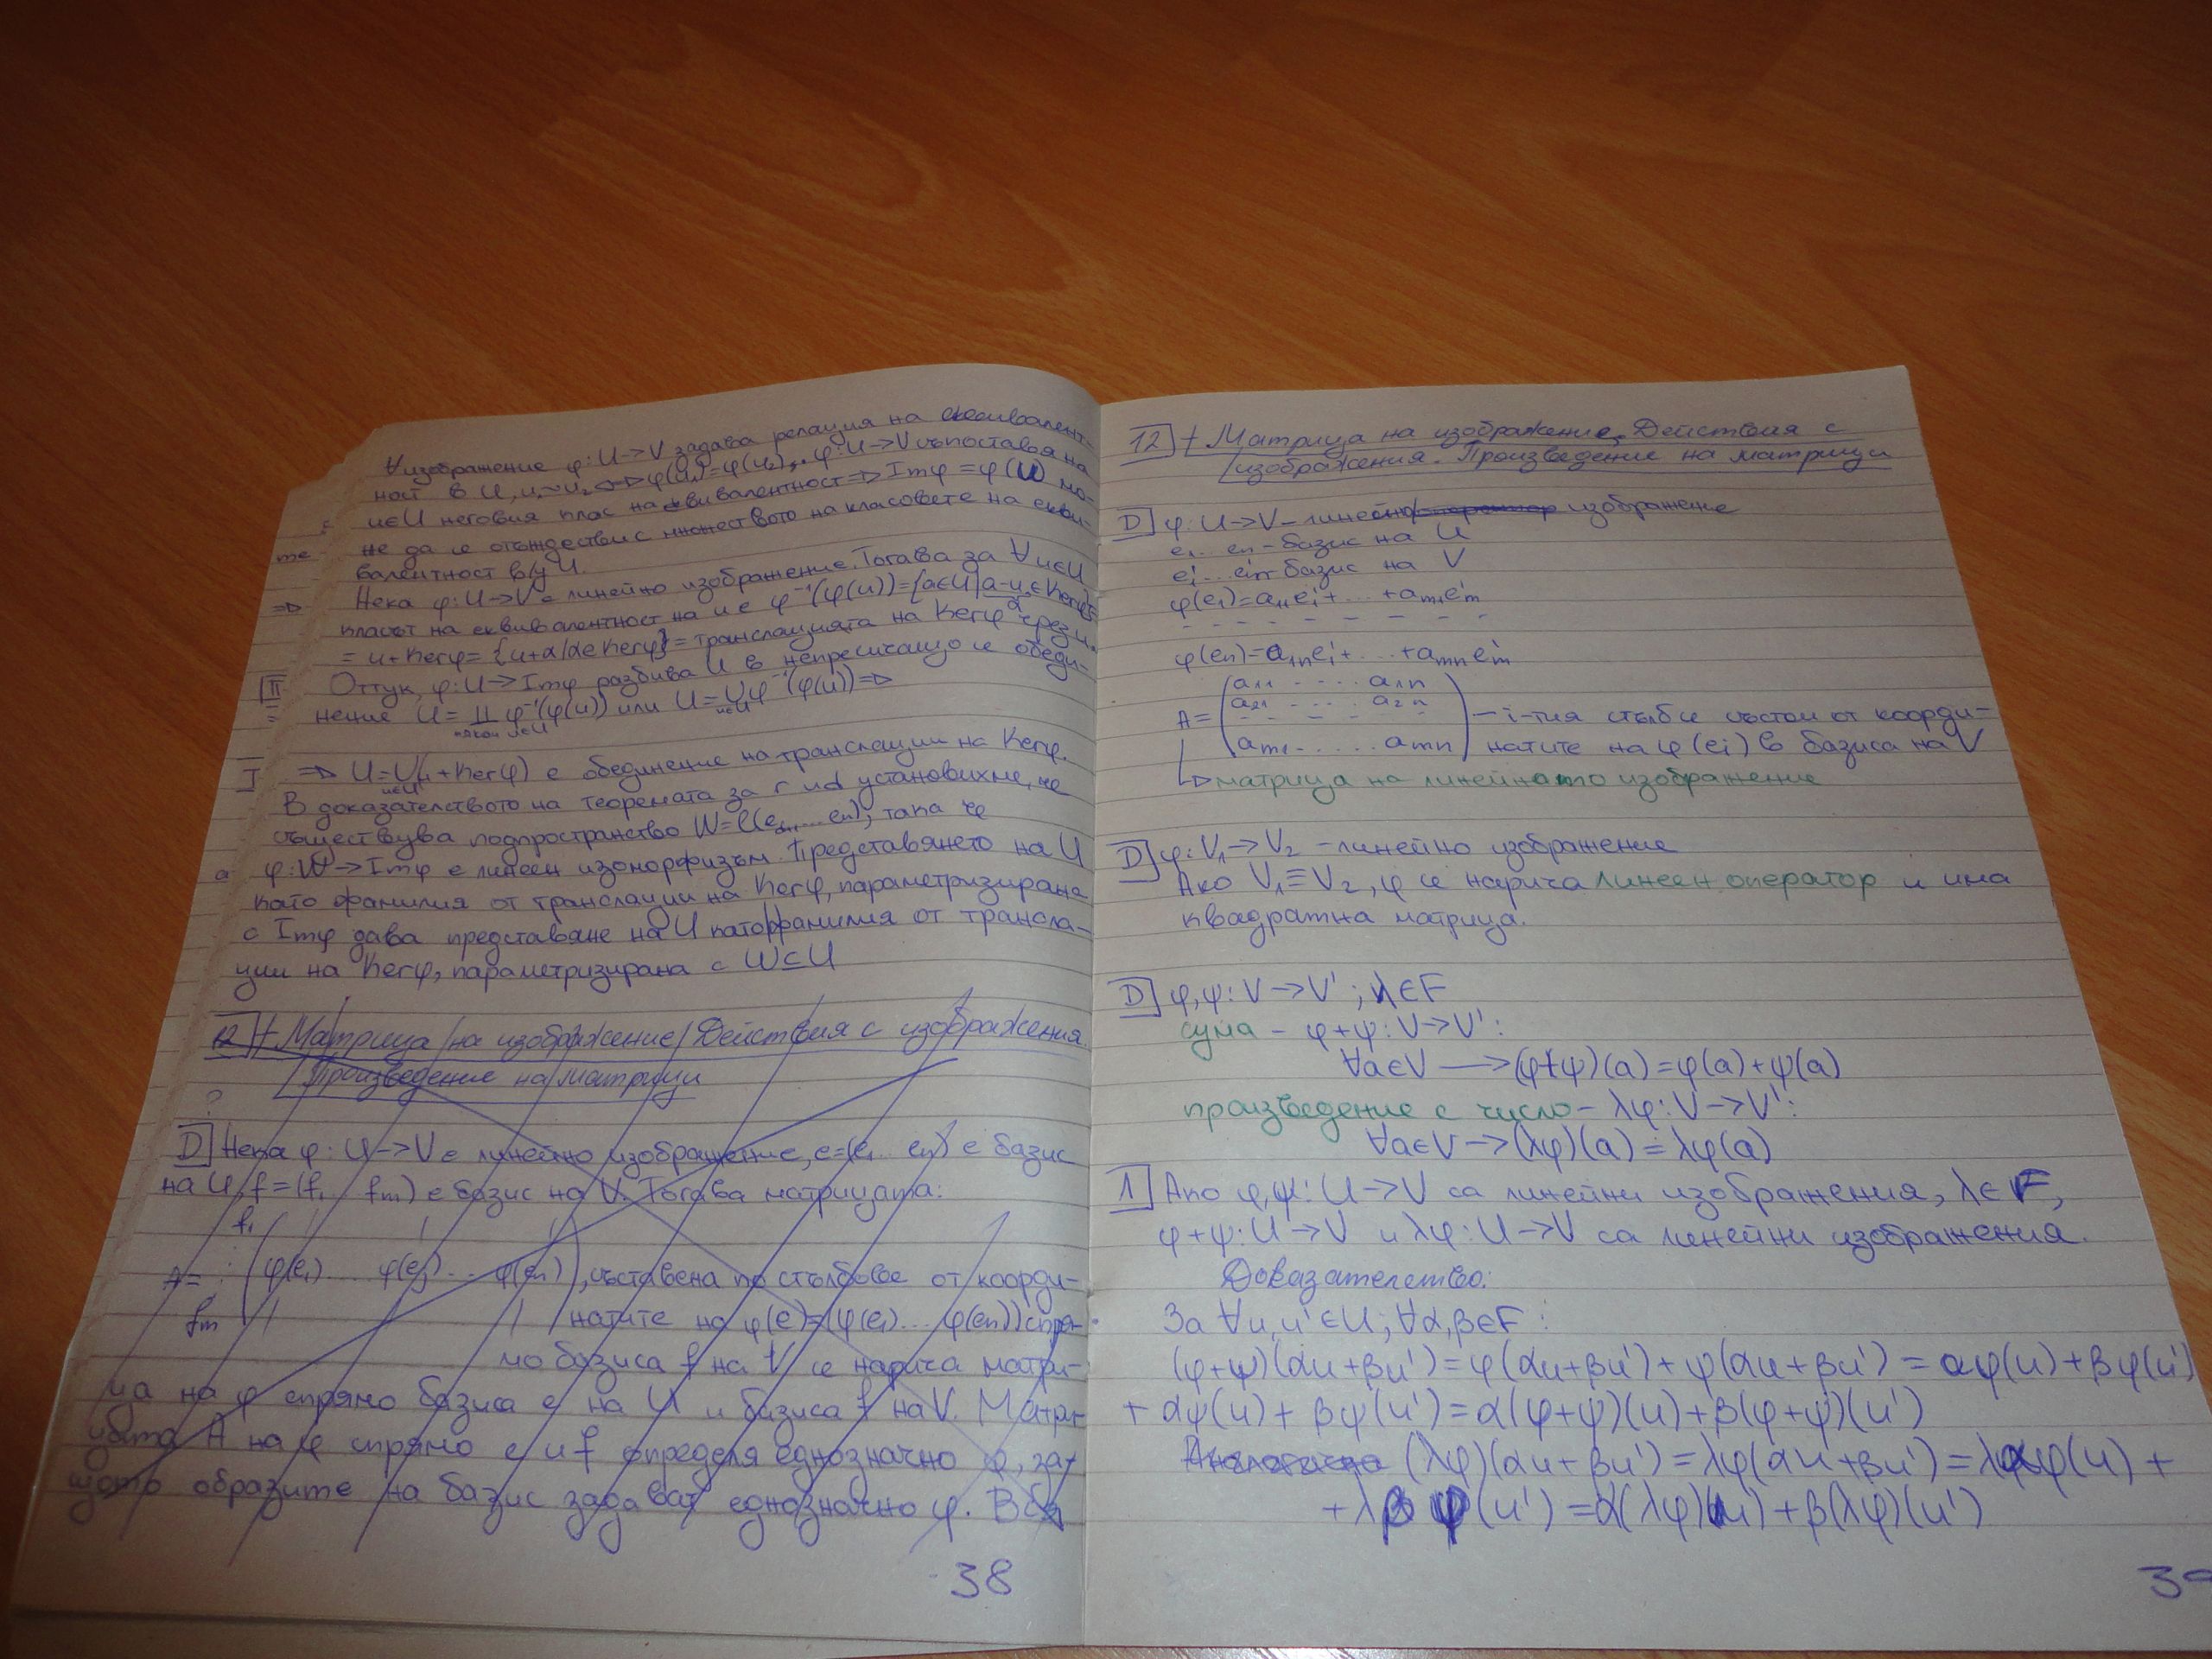 ∀изображение φ: U→V задава релация на еквивалент-
ност в U, u₁~u₂ ⇔ φ(u₁)=φ(u₂). φ: U→V съпоставя на
u∈U неговия клас на еквивалентност ⇒ Imφ = φ(U) мо-
же да се отъждестви с множеството на класовете на екви-
валентност в/у U.
Нека φ: U→V е линейно изображение. Тогава за ∀u∈U
класът на еквивалентност на u е φ⁻¹(φ(u))={a∈U | a-u∈Kerφ}=
= u+Kerφ= {u+α | α∈Kerφ} = транслацията на Kerφ чрез u.
Оттук, φ: U→Imφ разбива U в непресичащо се обеди-
нение U= ∐ φ⁻¹(φ(u)) или U= ∪ φ⁻¹(φ(u)) ⇒
⇒ U=∪(u+Kerφ) е обединение на транслации на Kerφ.
В доказателството на теоремата за r и d установихме, че
съществува подпространство W=ℓ(e_{d+1}...en), така че
φ: W→Imφ е линеен изоморфизъм. Представянето на U
като фамилия от транслации на Kerφ, параметризирана
с Imφ дава представяне на U като фамилия от трансла-
ции на Kerφ, параметризирана с W⊆U
12 + Матрица на изображение. Действия с изображения.
Произведение на матрици
D Нека φ: U→V е линейно изображение, e=(e₁...en) е базис
на U, f=(f₁...fm) е базис на V. Тогава матрицата:
f₁
A= ⋮ (φ(e₁)...φ(ej)...φ(en)), съставена по стълбове от коорди-
fm натите на φ(e)=(φ(e₁)...φ(en)) спря-
мо базиса f на V се нарича матри-
ца на φ спрямо базиса e на U и базиса f на V. Матри-
цата A на φ спрямо e и f определя еднозначно φ, за-
щото образите на базис задават еднозначно φ. В
38
12 + Матрица на изображение. Действия с
изображения. Произведение на матрици
D φ: U→V - линейно изображение
e₁...en - базис на U
e₁'...em' - базис на V
φ(e₁)=a₁₁e₁'+...+am₁em'
- - - - - - - - -
φ(en)=a₁ne₁'+...+amnem'
a₁₁ .... a₁n
a₂₁ .... a₂n
A= - - - - - - i-тия стълб се състои от коорди-
am₁ ..... amn натите на φ(ei) в базиса на V
матрица на линейното изображение
D φ: V₁→V₂ - линейно изображение
Ако V₁≡V₂, φ се нарича линеен оператор и има
квадратна матрица.
D φ,ψ: V→V'; λ∈F
сума - φ+ψ: V→V':
∀a∈V → (φ+ψ)(a)=φ(a)+ψ(a)
произведение с число - λφ: V→V':
∀a∈V → (λφ)(a)=λφ(a)
1 Ако φ,ψ: U→V са линейни изображения, λ∈F,
φ+ψ: U→V и λφ: U→V са линейни изображения.
Доказателство:
За ∀u,u'∈U; ∀α,β∈F:
(φ+ψ)(αu+βu')=φ(αu+βu')+ψ(αu+βu')=αφ(u)+βφ(u')
+αψ(u)+βψ(u')=α(φ+ψ)(u)+β(φ+ψ)(u')
Аналогично (λφ)(αu+βu')=λφ(αu+βu')=λαφ(u)+
+λβφ(u')=α(λφ)(u)+β(λφ)(u')
39